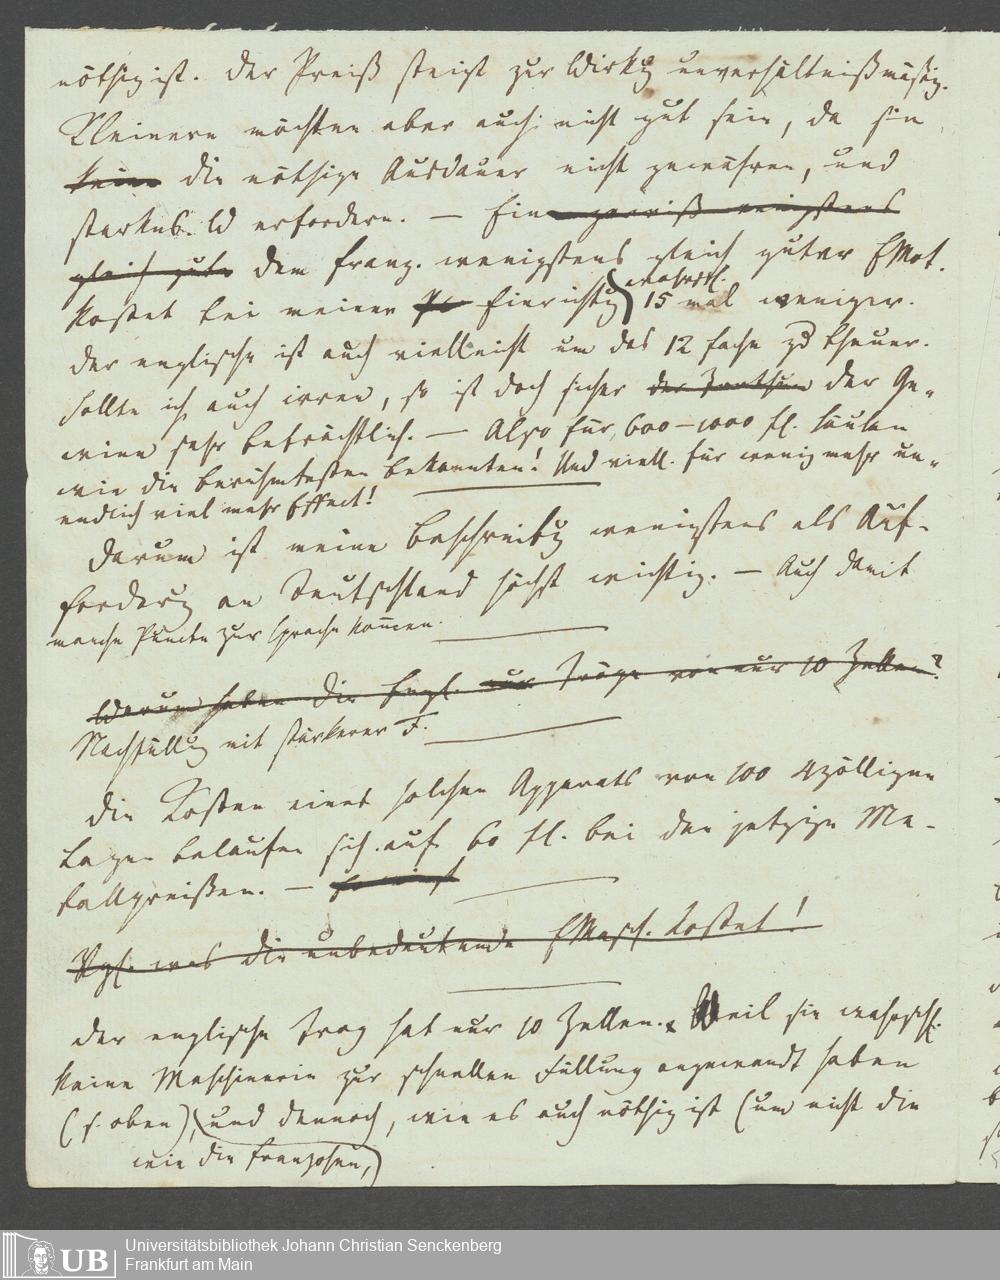 nöthig ist. Der Preiß steigt zur Wirkg unverhältnißmäßig.
Kleinere möchten aber auch nicht gut sein, da sie
keine die nöthige Ausdauer nicht gewähren, und
starkes erfordern. — Eine gewiß wenigstens
gleich gute dem franz. wenigstens gleich guter EMot.
kostet bei meiner Einrichtg wahrsch. 15 mal weniger.
Der englische ist auch vielleicht um das 12 fache zu theuer.
Sollte ich auch irren, so ist doch sicher der Irrthum der Ge-
winn sehr beträchtlich. — Also für 600–1000 fl. Säulen
wie die berühmtesten bekannten! Und viell. für wenig mehr un-
endlich viel mehr Effect!
Darum ist meine Beschreibg wenigstens als Auf-
forderg an Teutschland höchst wichtig. — Auch damit
manche Puncte zur Sprache kommen.
Warum haben die Engl. nur Tröge von nur 10 Zellen?
Nachfüllg mit stärkerer F.
Die Kosten eines solchen Apparats von 100 4zölligen
Lagen belaufen sich auf 60 fl. bei den jetzige Me-
tallpreißen. —
Vgl. was die unbedeutende EMasch. kostet!
Der englische Trog hat nur 10 Zellen. Weil sie wahrschl.
keine Maschinerie zur schnellen Füllung angewandt haben
(s. oben), und dennoch, wie es auch nöthig ist (um nicht die
wie die Franzosen,)
Universitätsbibliothek Johann Christian Senckenberg
Frankfurt am Main
UB